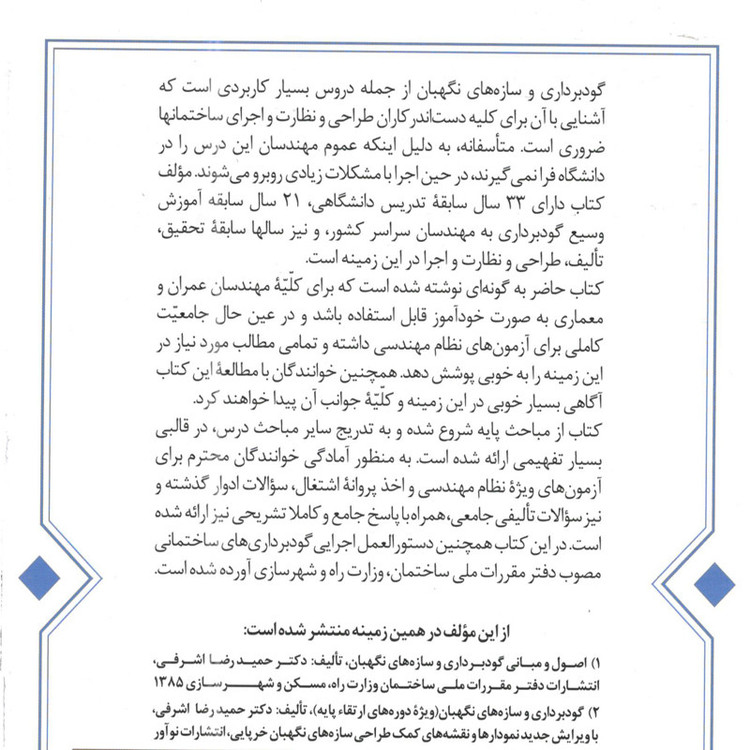 گودبرداری و سازه‌های نگهبان از جمله دروس بسیار کاربردی است که
آشنایی با آن برای کلیه دست‌اندرکاران طراحی و نظارت و اجرای ساختمانها
ضروری است. متأسفانه، به دلیل اینکه عموم مهندسان این درس را در
دانشگاه فرا نمی‌گیرند، در حین اجرا با مشکلات زیادی روبرو می‌شوند. مؤلف
کتاب دارای ۳۳ سال سابقهٔ تدریس دانشگاهی، ۲۱ سال سابقه آموزش
وسیع گودبرداری به مهندسان سراسر کشور، و نیز سالها سابقهٔ تحقیق،
تألیف، طراحی و نظارت و اجرا در این زمینه است.
کتاب حاضر به گونه‌ای نوشته شده است که برای کلّیّهٔ مهندسان عمران و
معماری به صورت خودآموز قابل استفاده باشد و در عین حال جامعیّت
کاملی برای آزمون‌های نظام مهندسی داشته و تمامی مطالب مورد نیاز در
این زمینه را به خوبی پوشش دهد. همچنین خوانندگان با مطالعهٔ این کتاب
آگاهی بسیار خوبی در این زمینه و کلّیّهٔ جوانب آن پیدا خواهند کرد.
کتاب از مباحث پایه شروع شده و به تدریج سایر مباحث درس، در قالبی
بسیار تفهیمی ارائه شده است. به منظور آمادگی خوانندگان محترم برای
آزمون‌های ویژهٔ نظام مهندسی و اخذ پروانهٔ اشتغال، سؤالات ادوار گذشته و
نیز سؤالات تألیفی جامعی، همراه با پاسخ جامع و کاملا تشریحی نیز ارائه شده
است. در این کتاب همچنین دستورالعمل اجرایی گودبرداری‌های ساختمانی
مصوب دفتر مقررات ملی ساختمان، وزارت راه و شهرسازی آورده شده است.
از این مؤلف در همین زمینه منتشر شده است:
۱) اصول و مبانی گودبرداری و سازه‌های نگهبان، تألیف: دکتر حمیدرضا اشرفی،
انتشارات دفتر مقررات ملی ساختمان وزارت راه، مسکن و شهرسازی ۱۳۸۵
۲) گودبرداری و سازه‌های نگهبان(ویژهٔ دوره‌های ارتقاء پایه)، تألیف: دکتر حمیدرضا اشرفی،
با ویرایش جدید نمودارها و نقشه‌های کمک طراحی سازه‌های نگهبان خرپایی، انتشارات نوآور